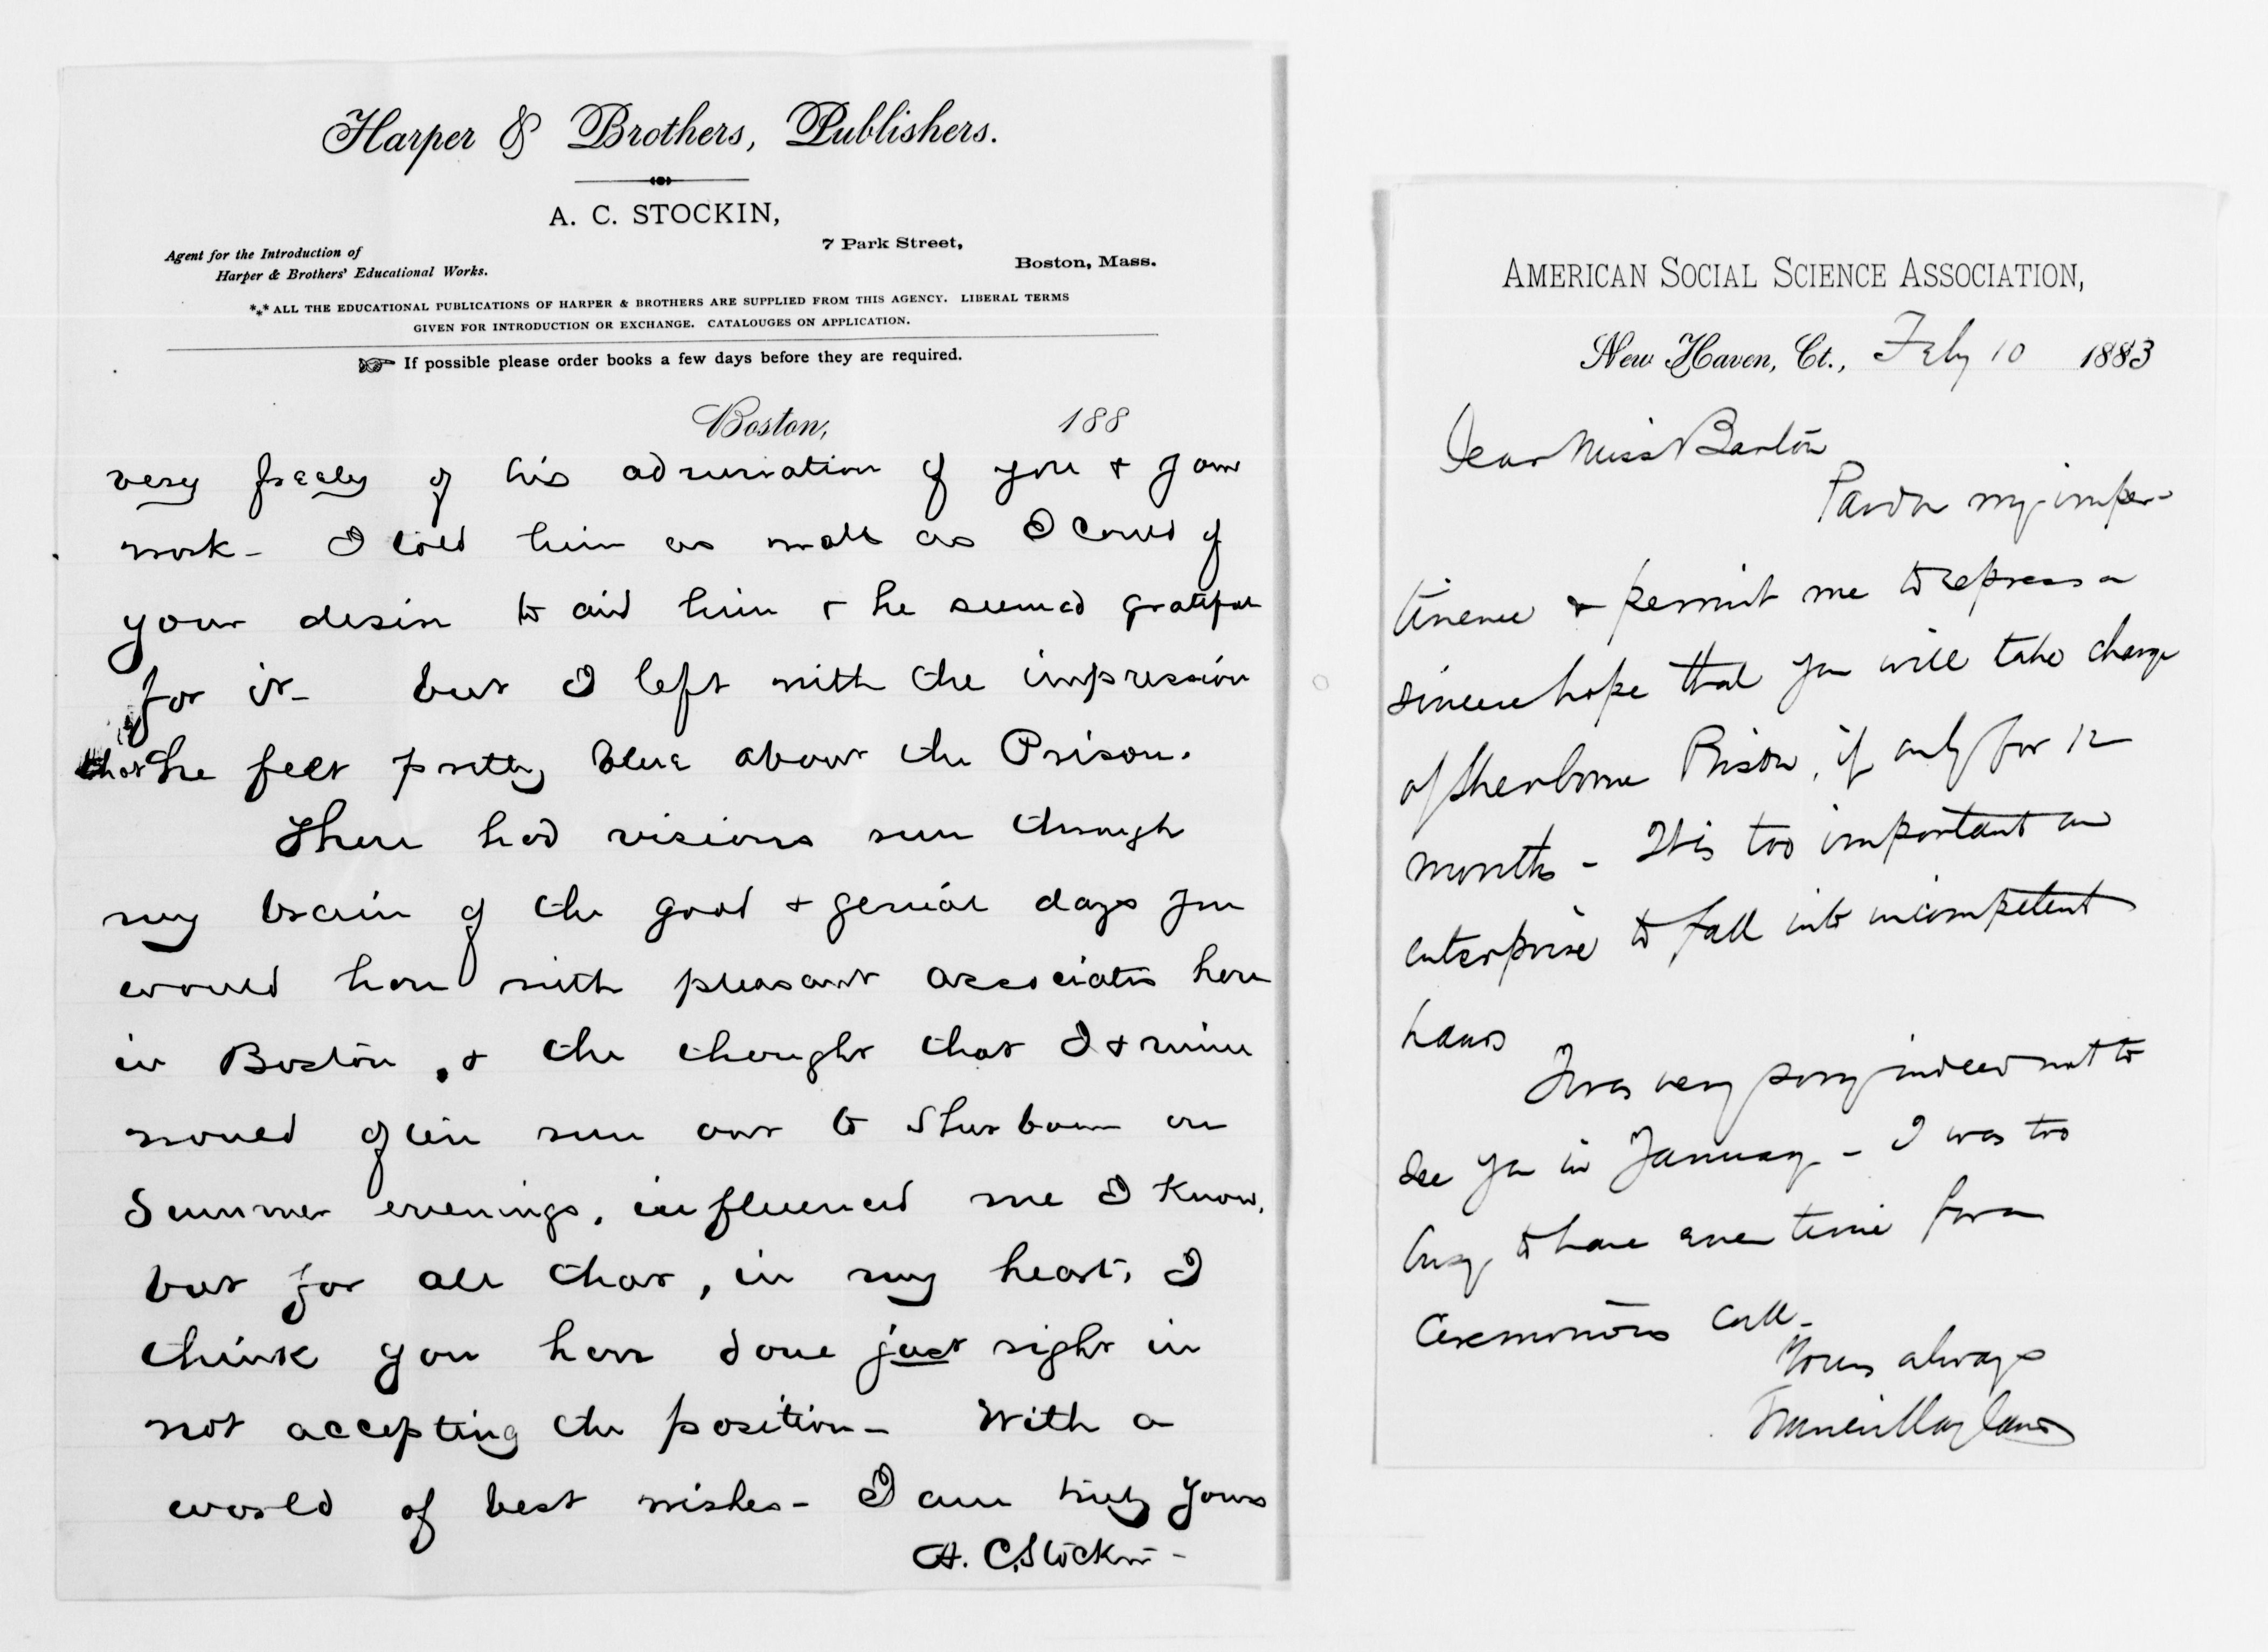 Harper & Brothers, Publishers.
A. C. STOCKIN,
Agent for the Introduction of
Harper & Brothers' Educational Works.
7 Park Street,
Boston, Mass.
*⁎* ALL THE EDUCATIONAL PUBLICATIONS OF HARPER & BROTHERS ARE SUPPLIED FROM THIS AGENCY. LIBERAL TERMS
GIVEN FOR INTRODUCTION OR EXCHANGE. CATALOUGES ON APPLICATION.
☞ If possible please order books a few days before they are required.
Boston, 188
very freely of his admiration of you & your
work - I told him as well as I could of
your desire to aid him & he seemed grateful
for it - but I left with the impression
that he felt pretty blue about the Prison.
There had visions run through
my brain of the good & genial days you
would have with pleasant associates here
in Boston, & the thought that I & mine
would often run out to Sherborn on
Summer evenings, influenced me I know,
but for all that, in my heart, I
think you have done just right in
not accepting the position - With a
world of best wishes - I am truly yours
A. C. Stockin -
AMERICAN SOCIAL SCIENCE ASSOCIATION,
New Haven, Ct., Feby 10 1883
Dear Miss Barton
Pardon my imper-
tinence & permit me to express a
sincere hope that you will take charge
of Sherborne Prison, if only for 12
months - It is too important an
enterprise to fall into incompetent
hands
I was very sorry indeed not to
see you in January - I was too
busy to have even time for a
ceremonious call -
Yours always
Francis Wayland